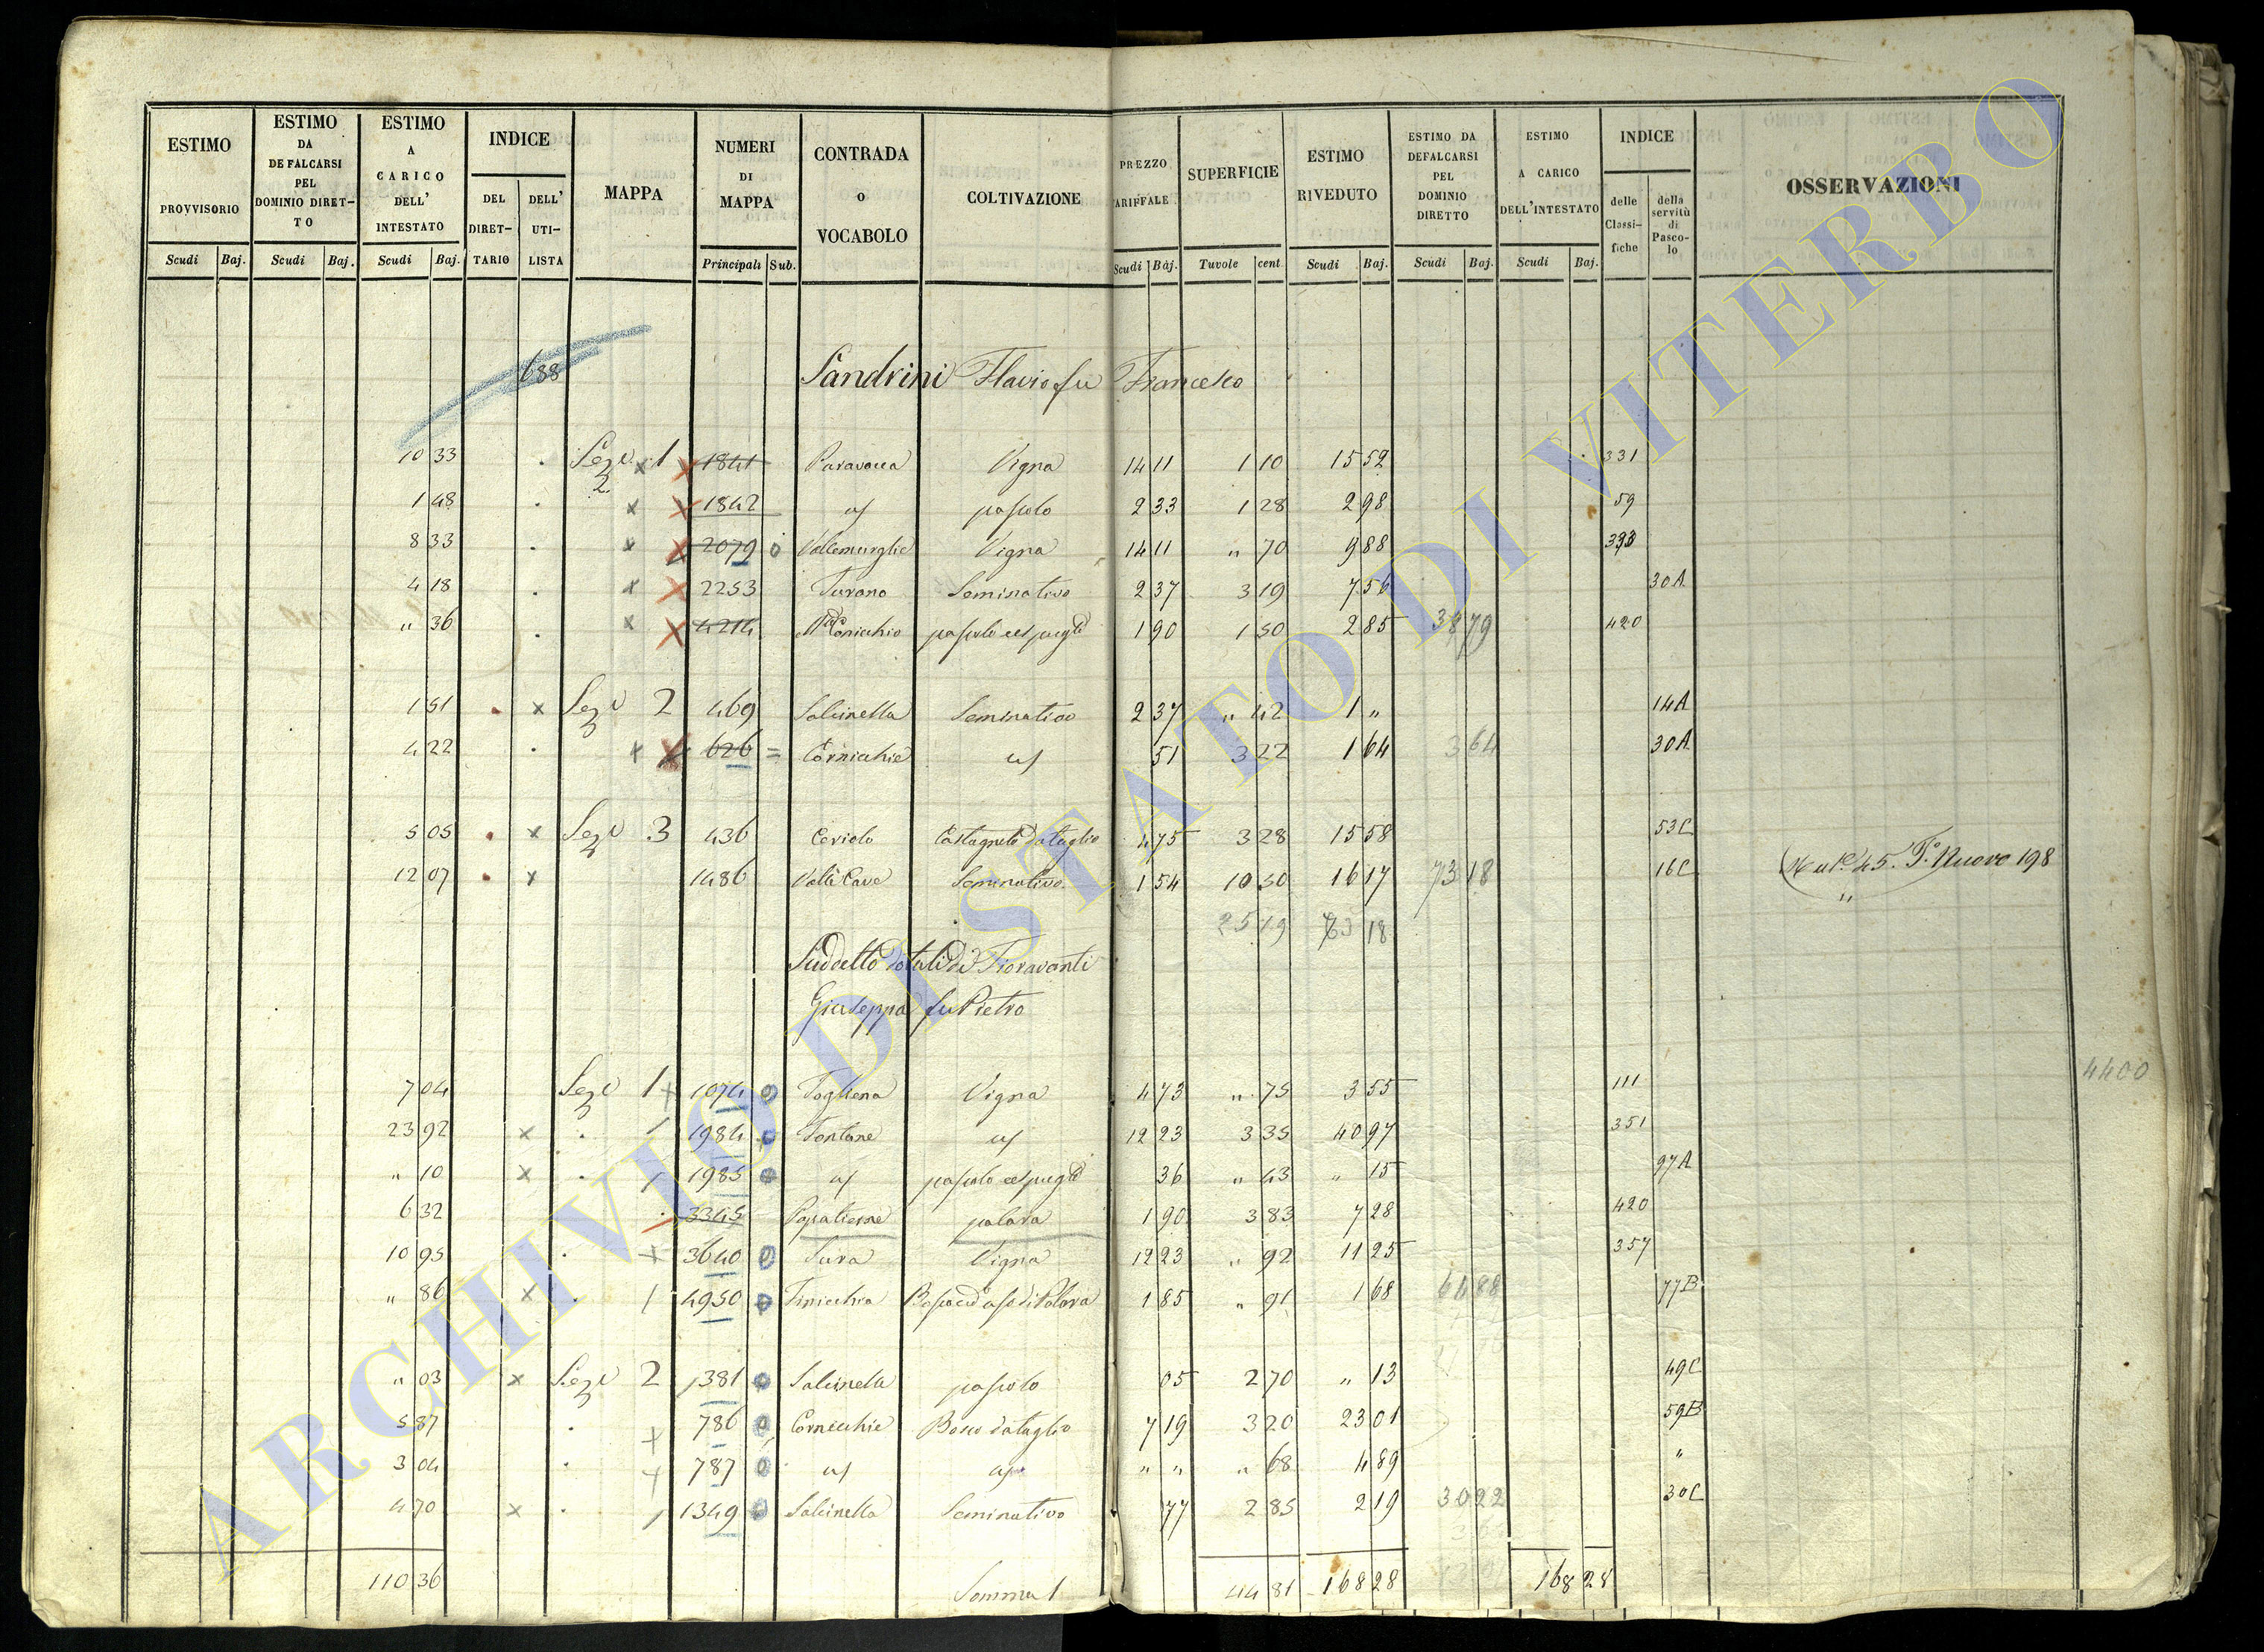 ESTIMO PROVVISORIO
ESTIMO DA DEFALCARSI PEL DOMINIO DIRET-TO
ESTIMO A CARICO DELL' INTESTATO
INDICE
DEL DIRET-TARIO
DELL' UTI-LISTA
MAPPA
NUMERI DI MAPPA
CONTRADA o VOCABOLO
COLTIVAZIONE
PREZZO TARIFFALE
SUPERFICIE
ESTIMO RIVEDUTO
ESTIMO DA DEFALCARSI PEL DOMINIO DIRETTO
ESTIMO A CARICO DELL'INTESTATO
INDICE
delle Classi-fiche
della servitù di Pasco-lo
OSSERVAZIONI
Scudi Baj. Scudi Baj. Scudi Baj. Principali Sub. Scudi Baj. Tuvole cent. Scudi Baj. Scudi Baj. Scudi Baj.
688 Sandrini Flavio fu Francesco
10 33 Seze 1 1841 Paravocca Vigna 14 11 1 10 15 52 331
2
1 48 1842 pascolo 2 33 1 28 2 98 59
8 33 2079 0 Vallemuglie Vigna 14 11 " 70 9 88
4 18 2253 Turano Seminativo 2 37 3 19 7 56 30A
" 36 4214 pascolo cespuglto 1 90 1 50 2 85 38 79 420
1 51 Seze 2 469 Salcinella Seminativo 2 37 " 42 1 " 14A
4 22 626 = Cornicchie 51 3 22 1 64 3 64 30A
5 05 Seze 3 436 Ceriolo Castagneto da taglio 4 75 3 28 15 58 53C
12 07 1486 Valle Cave Seminativo 1 54 10 50 16 17 73 18 16C 45. T.º Nuovo 198
25 19 73 18 "
Suddetto dotali di Fioravanti
Giuseppa fu Pietro
4400
7 04 Seze 1 1074 0 Togliena Vigna 4 73 " 75 3 55 111
23 92 1984 0 Fontane 12 23 3 35 40 97 351
" 10 1985 0 pascolo cespuglto 36 " 43 " 15 97A
6 32 3345 Papatierne palara 1 90 3 83 7 28 420
10 95 3640 0 Sura Vigna 12 23 " 92 11 25 357
" 86 4950 0 1 85 " 91 1 68 64 88 77B
" 03 Seze 2 381 0 Salcinella pascolo 05 2 70 " 13 49C
5 87 786 0 Cornicchie Bosco da taglio 7 19 3 20 23 01 59B
3 04 787 0 " " " 68 4 89 "
4 70 1349 0 Salcinella Seminativo 77 2 85 2 19 30 22 30C
110 36 Somma 1 44 81 168 28 168 28
ARCHIVIO DI STATO DI VITERBO